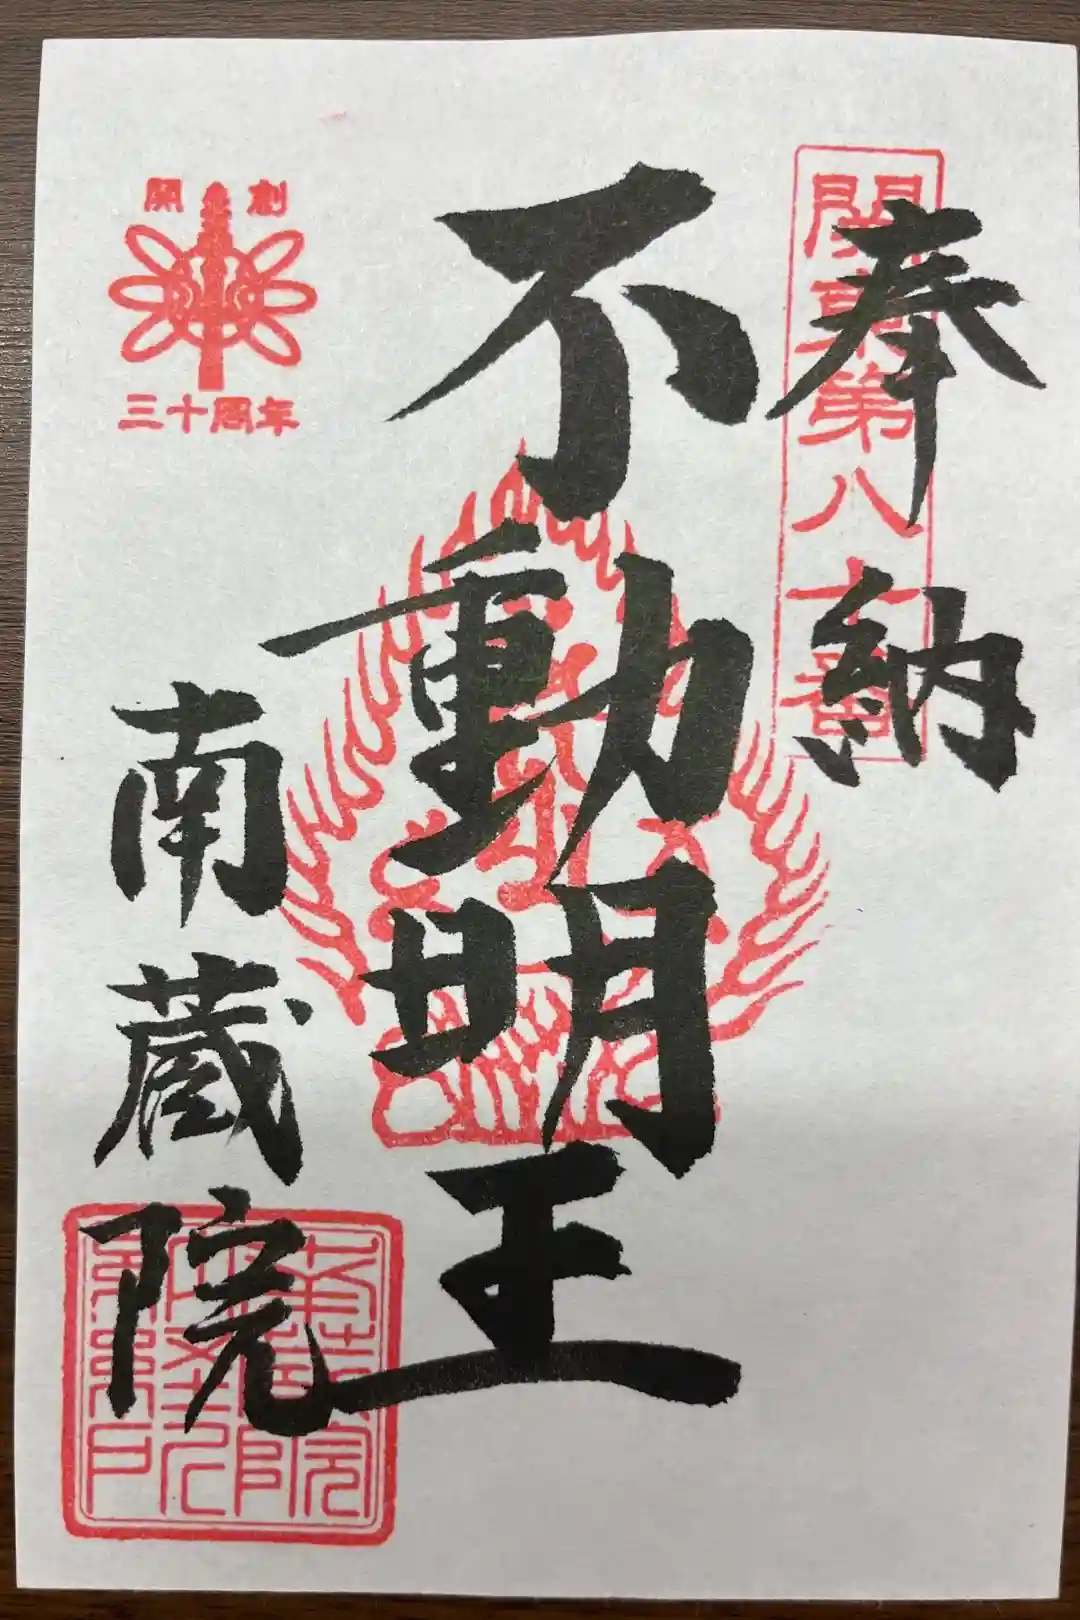 奉納
関東第八十番
不動明王
南蔵院
開創
三十周年